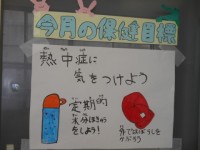 今月の保健目標
熱中症に
気をつけよう
定期的に
水分ほきゅう
をしよう！
外ではぼうしを
かぶろう